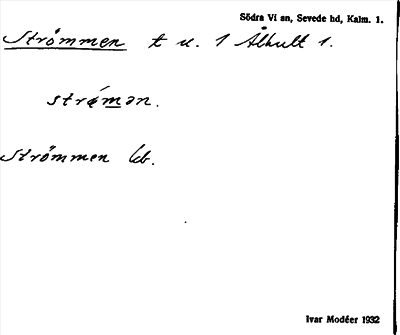 Södra Vi sn, Sevede hd, Kalm. 1.
Strömmen t u. 1 Ålhult 1.
strǿmən.
Strömmen kb.
Ivar Modéer 1932